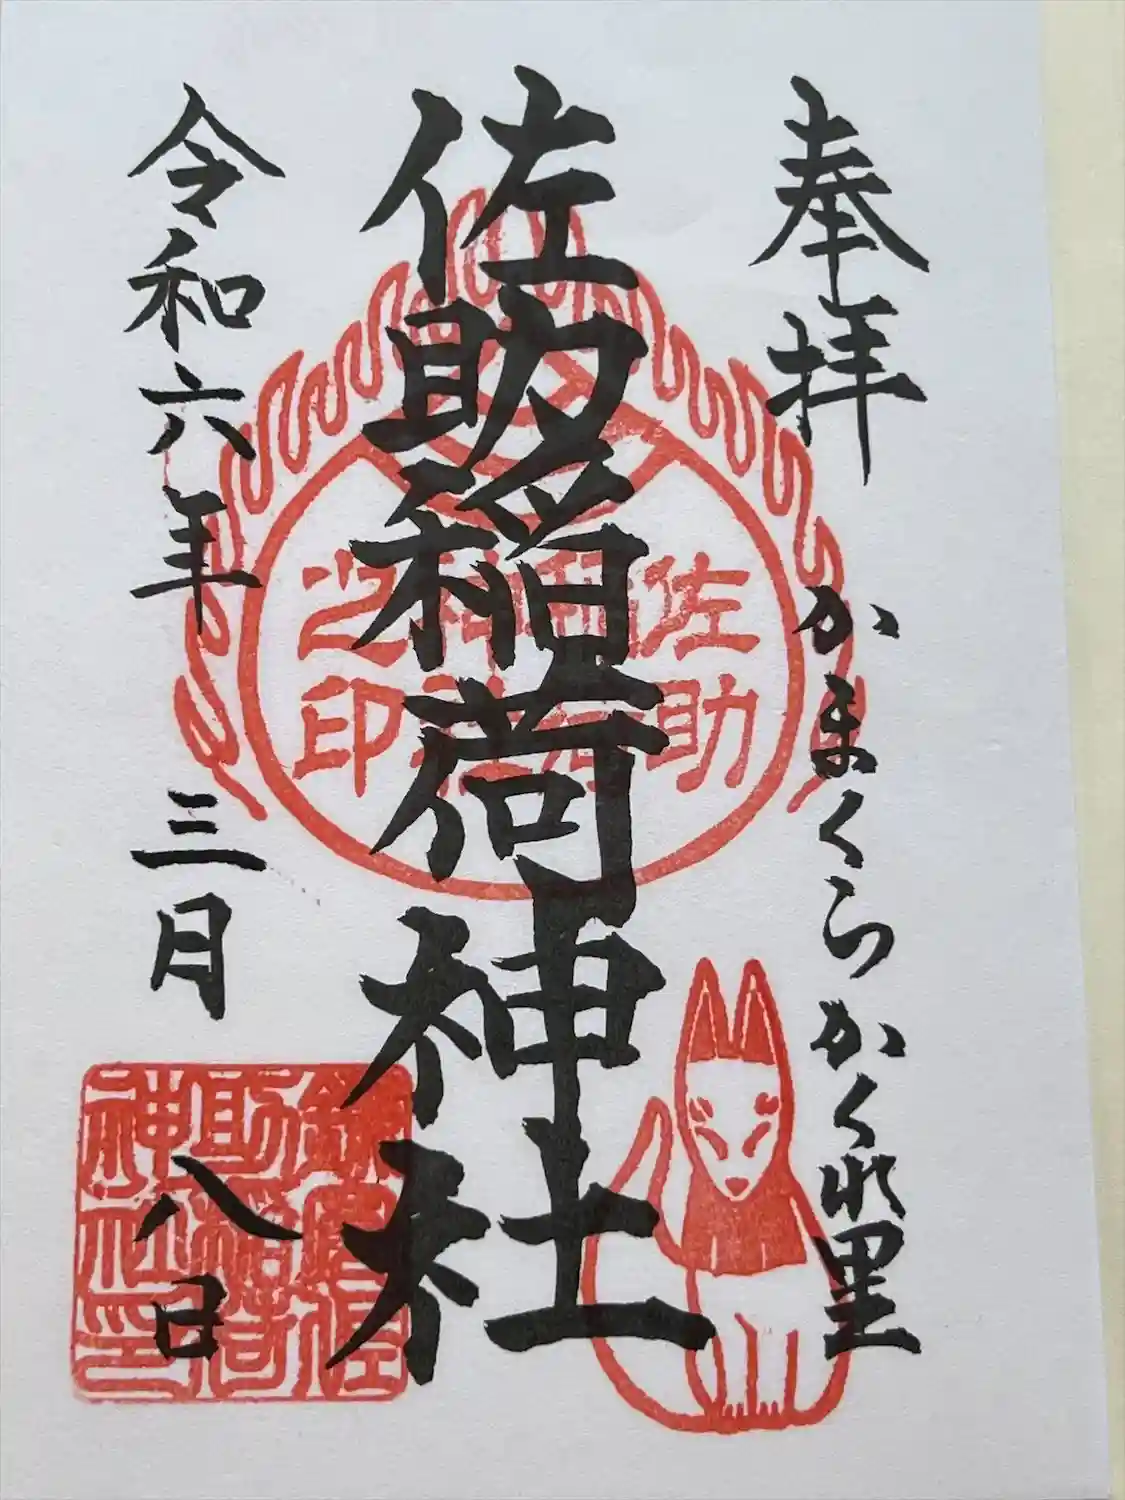 奉拝
かまくらかくれ里
佐助稲荷神社
佐助稲荷神社之印
鎌倉佐助稲荷神社印
令和六年 三月 八日